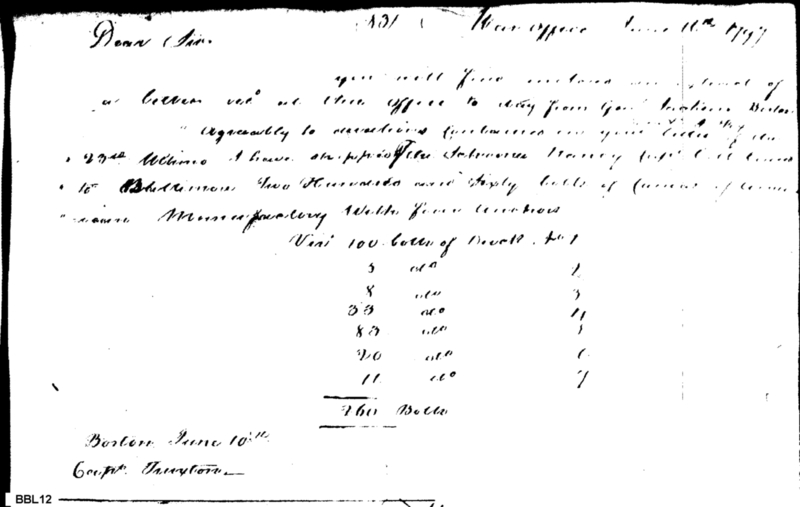 (131) War Office June 16th 1797
Dear Sir.
you will find enclosed an extract of
a letter recd at this office to day from Genl Jackson Boston
" Agreeably to directions contained in your letter of the
" 23rd Ultimo I have shipped the Schooner Nancy Capt bound
" to Baltimore Two Hundred and Sixty bolts of Canvas of
" Manufactory With four Anchors
Vizt 100 bolts of Duck No 1
5 do 2
8 do 3
33 do 4
83 do 5
20 do 6
11 do 7
260 Bolts
Boston June 10th
Capt. Truxton
BBL12